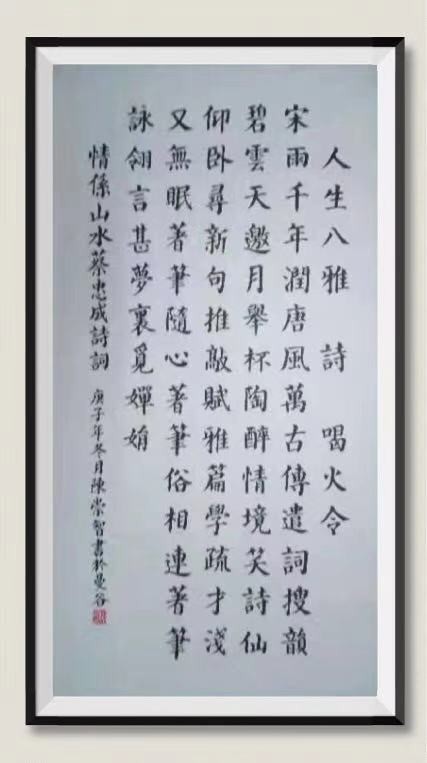 人生八雅 詩 喝火令
宋雨千年潤唐風萬古傳遣詞搜韻
碧雲天邀月舉杯陶醉情境笑詩仙
仰卧尋新句推敲賦雅篇學疏才淺
又無眠著筆隨心著筆俗相連著筆
詠翎言甚夢裏覓嬋娟
情係山水蔡忠成詩詞 庚子年冬月陳崇智書於曼谷